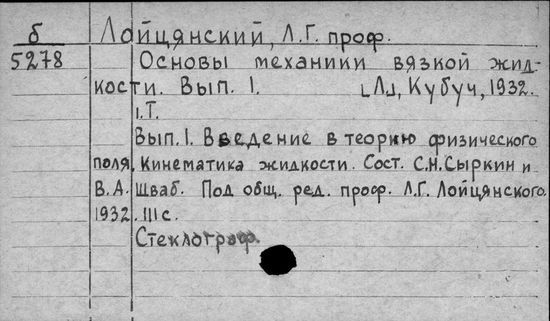 б Лойцянский, Л.Г. проф.
5278 Основы механики вязкой жид-
кости. Вып. 1. [Л], Кубуч, 1932.
1.Т.
Вып.1. Введение в теорию физического
поля. Кинематика жидкости. Сост. С.Н.Сыркин и
В.А. Шваб. Под общ. ред. проф. Л.Г. Лойцянского.
1932. 111 с.
Стеклограф.